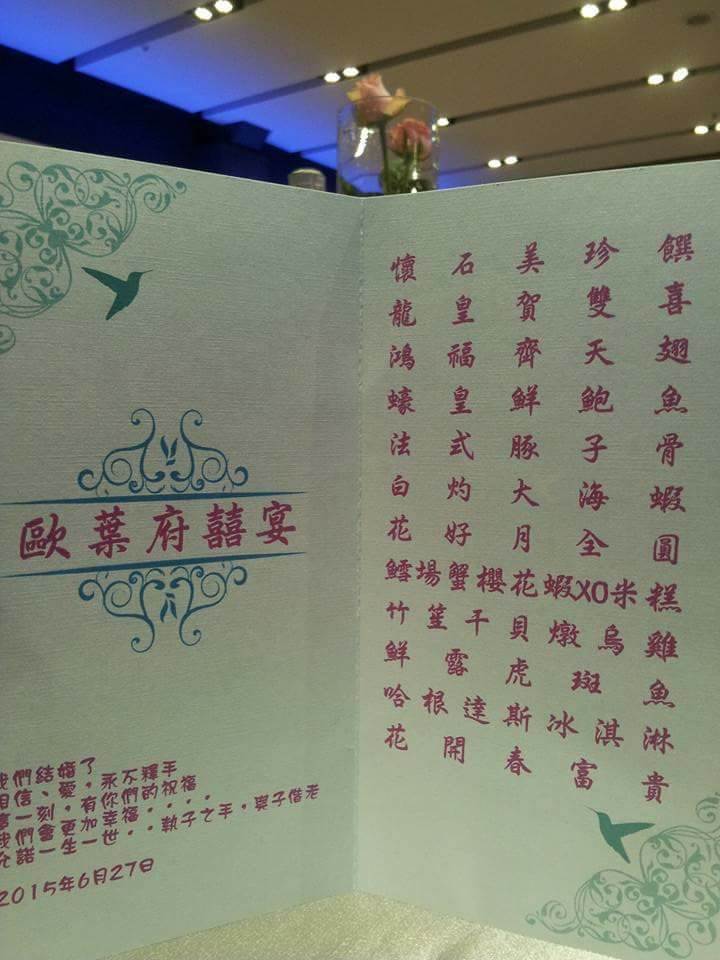 歐葉府囍宴
我們結婚了
相信、愛，永不釋手
一刻，有你們的祝福
我們會更加幸福．．．．
允諾一生一世．．執子之手，與子偕老
2015年6月27日
懷石美珍饌
龍皇賀雙喜
鴻福齊天翅
蠔皇鮮鮑魚
法式豚子骨
白灼大海蝦
花好月全圓
鱈場蟹櫻花蝦XO米糕
竹笙干貝燉烏雞
鮮露虎斑魚
哈根達斯冰淇淋
花開春富貴